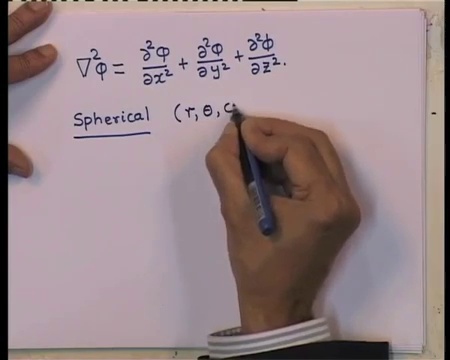 ∇²φ = ∂²φ/∂x² + ∂²φ/∂y² + ∂²φ/∂z².
Spherical (r, θ, c